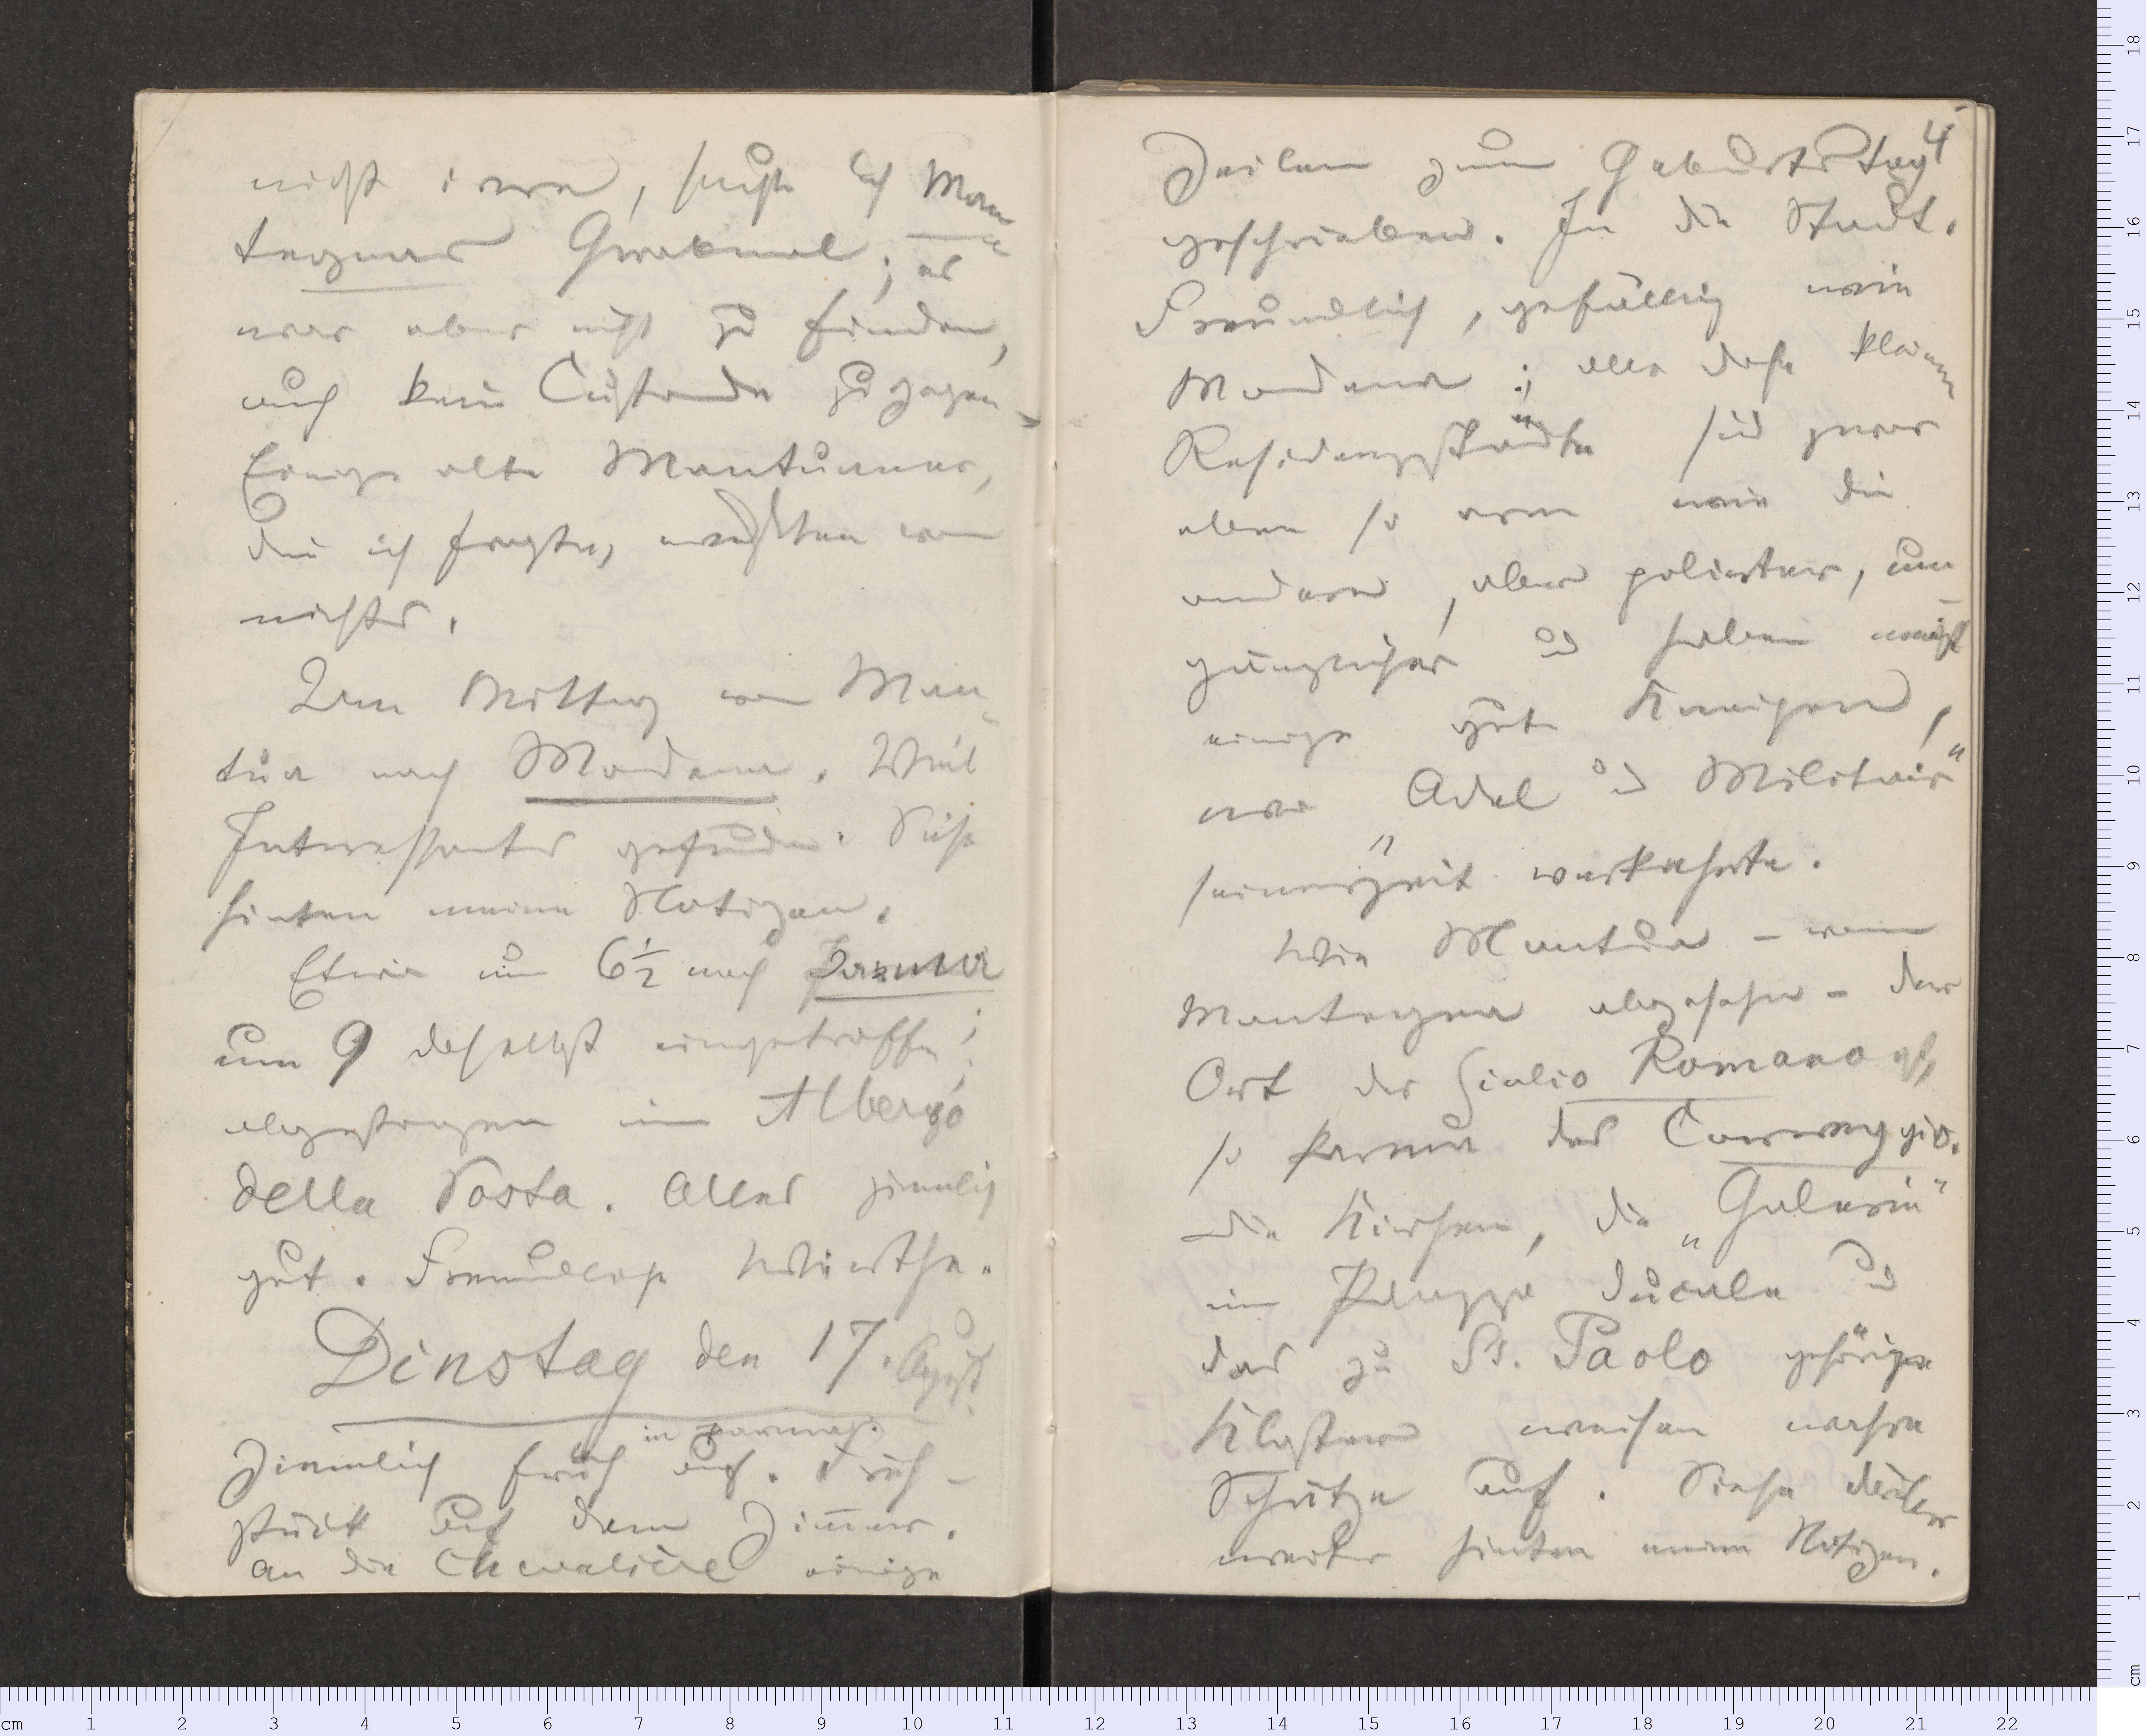 nicht irre, suchte ich Man-
tegnas Grabmal; es
war aber nicht zu finden,
auch kein Custode zugegen.
Einige alte Mantuaner,
die ich fragte, wußten von
nichts.
Um Mittag von Man-
tua nach Modena. Viel
Interessantes gefunden. Siehe
hinten meine Notizen.
Etwa um 6½ nach Parma
um 9 daselbst eingetroffen;
abgestiegen im Albergo
della Posta. Alles ziemlich
gut. Freundliche Wirthe.
Dinstag den 17. August
in Parma.
Ziemlich früh auf. Früh-
stück auf dem Zimmer.
An die Chevalière einige
4
Zeilen zum Geburtstag
geschrieben. In die Stadt.
Freundlich, gefällig wie
Modena; alle diese kleinen
Residenzstädte sind zwar
eben so arm wie die
andern, aber polirter, um-
gänglicher und haben meist
einige gute Kneipen,
wo „Adel und Militair"
seinerzeit verkehrte.
Wie Mantua – von
Mantegna abgesehn – der
Ort des Giulio Romano ist,
so Parma des Correggio.
Die Kirchen, die „Galerie"
im Palazzo ducale und
das zu St. Paolo gehörige
Kloster weisen wahre
Schätze auf. Siehe drüber
weiter hinten meine Notizen.